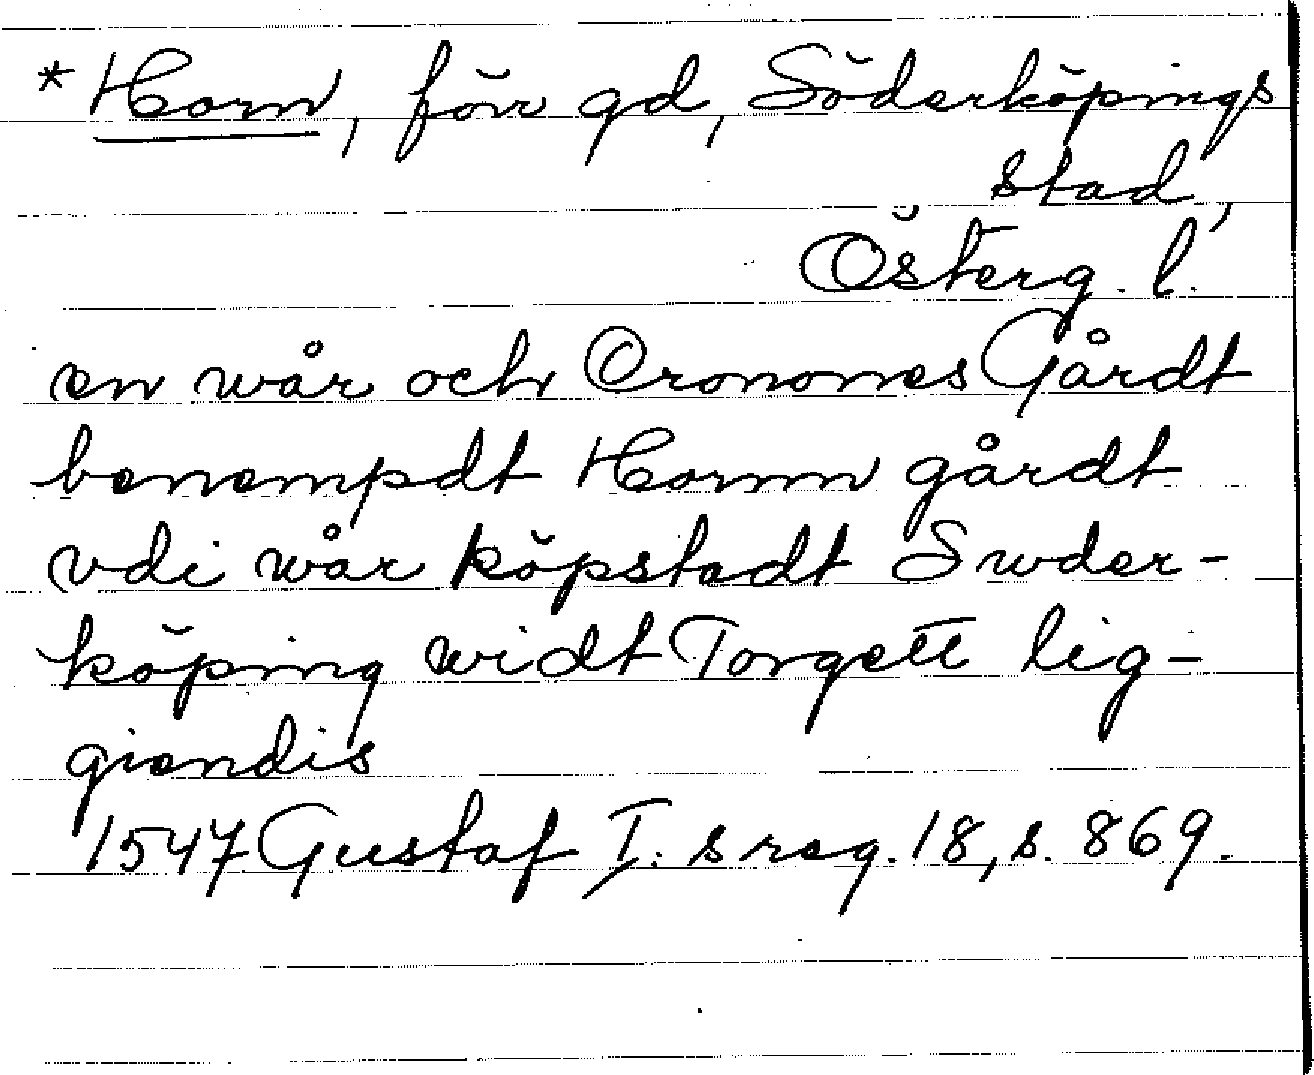 * Horn, förr gd, Söderköpings
stad,
Österg. l.
en wår och Cronones Gårdt
benempdt Hornn gårdt
vdi wår köpstadt Swder-
köping widt Torgett lig-
giendis
1547 Gustaf I:s reg. 18, s. 869.